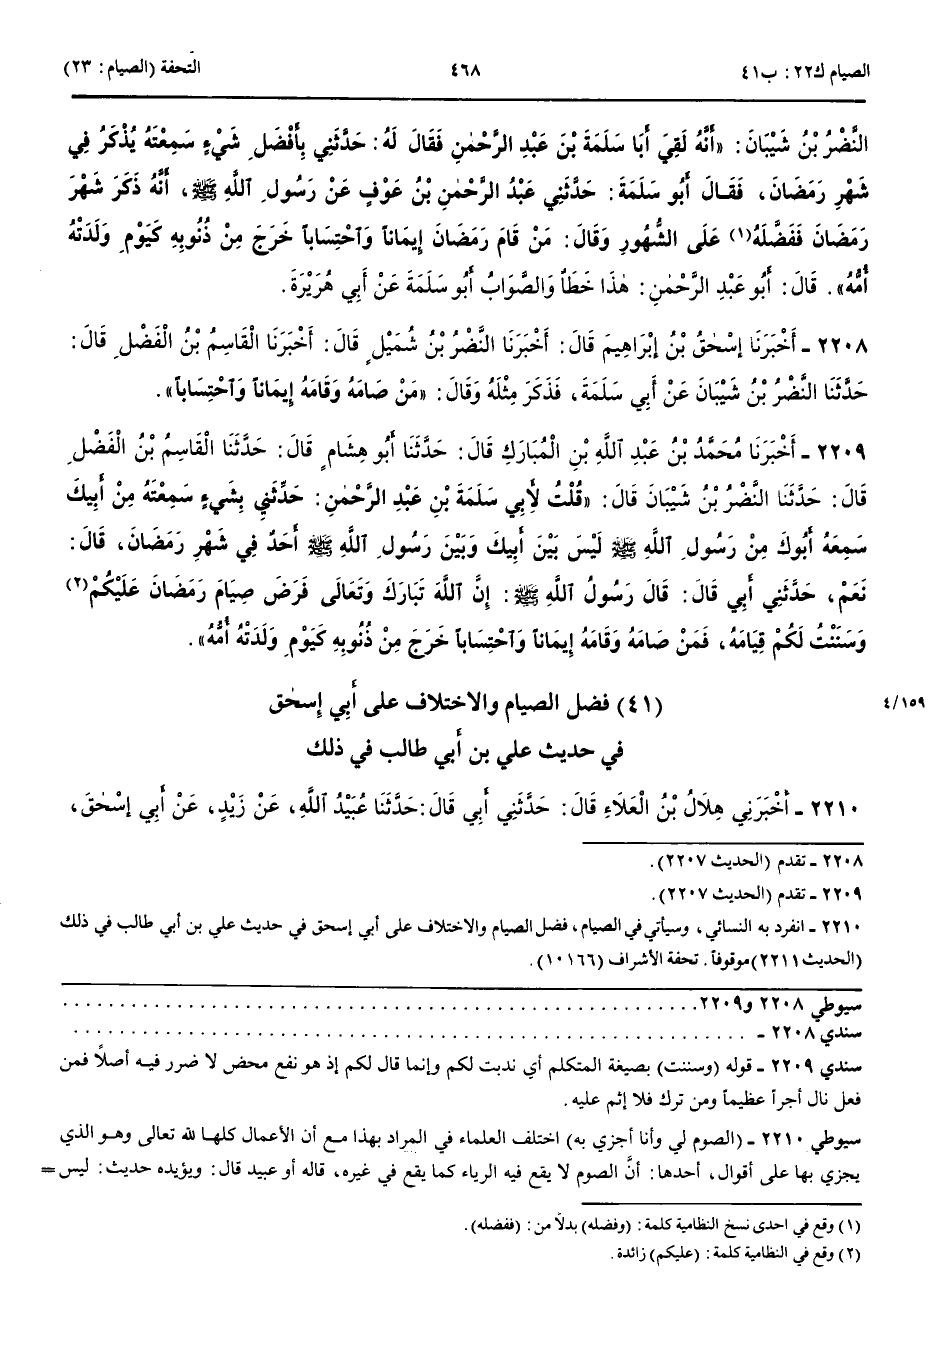 الصيام ك٢٢: ب٤١ ٤٦٨ التحفة (الصيام: ٢٣)
النَّضْرُ بْنُ شَيْبَانَ: «أَنَّهُ لَقِيَ أَبَا سَلَمَةَ بْنَ عَبْدِ الرَّحْمٰنِ فَقَالَ لَهُ: حَدِّثْنِي بِأَفْضَلِ شَيْءٍ سَمِعْتَهُ يُذْكَرُ فِي
شَهْرِ رَمَضَانَ، فَقَالَ أَبُو سَلَمَةَ: حَدَّثَنِي عَبْدُ الرَّحْمٰنِ بْنُ عَوْفٍ عَنْ رَسُولِ اللَّهِ ﷺ، أَنَّهُ ذَكَرَ شَهْرَ
رَمَضَانَ فَفَضَّلَهُ(١) عَلَى الشُّهُورِ وَقَالَ: مَنْ قَامَ رَمَضَانَ إِيمَاناً وَاحْتِسَاباً خَرَجَ مِنْ ذُنُوبِهِ كَيَوْمِ وَلَدَتْهُ
أُمُّهُ». قَالَ: أَبُو عَبْدِ الرَّحْمٰنِ: هٰذَا خَطَأٌ وَالصَّوَابُ أَبُو سَلَمَةَ عَنْ أَبِي هُرَيْرَةَ.
٢٢٠٨ ـ أَخْبَرَنَا إِسْحٰقُ بْنُ إِبْرَاهِيمَ قَالَ: أَخْبَرَنَا النَّضْرُ بْنُ شُمَيْلٍ قَالَ: أَخْبَرَنَا الْقَاسِمُ بْنُ الْفَضْلِ قَالَ:
حَدَّثَنَا النَّضْرُ بْنُ شَيْبَانَ عَنْ أَبِي سَلَمَةَ، فَذَكَرَ مِثْلَهُ وَقَالَ: «مَنْ صَامَهُ وَقَامَهُ إِيمَاناً وَاحْتِسَاباً».
٢٢٠٩ ـ أَخْبَرَنَا مُحَمَّدُ بْنُ عَبْدِ اللَّهِ بْنِ الْمُبَارَكِ قَالَ: حَدَّثَنَا أَبُو هِشَامٍ قَالَ: حَدَّثَنَا الْقَاسِمُ بْنُ الْفَضْلِ
قَالَ: حَدَّثَنَا النَّضْرُ بْنُ شَيْبَانَ قَالَ: «قُلْتُ لِأَبِي سَلَمَةَ بْنِ عَبْدِ الرَّحْمٰنِ: حَدِّثْنِي بِشَيْءٍ سَمِعْتَهُ مِنْ أَبِيكَ
سَمِعَهُ أَبُوكَ مِنْ رَسُولِ اللَّهِ ﷺ لَيْسَ بَيْنَ أَبِيكَ وَبَيْنَ رَسُولِ اللَّهِ ﷺ أَحَدٌ فِي شَهْرِ رَمَضَانَ، قَالَ:
نَعَمْ، حَدَّثَنِي أَبِي قَالَ: قَالَ رَسُولُ اللَّهِ ﷺ: إِنَّ اللَّهَ تَبَارَكَ وَتَعَالَى فَرَضَ صِيَامَ رَمَضَانَ عَلَيْكُمْ(٢)
وَسَنَنْتُ لَكُمْ قِيَامَهُ، فَمَنْ صَامَهُ وَقَامَهُ إِيمَاناً وَاحْتِسَاباً خَرَجَ مِنْ ذُنُوبِهِ كَيَوْمِ وَلَدَتْهُ أُمُّهُ».
(٤١) فضل الصيام والاختلاف على أَبي إِسحٰق ٤/١٥٩
في حديث علي بن أَبي طالب في ذلك
٢٢١٠ ـ أَخْبَرَنِي هِلَالُ بْنُ الْعَلَاءِ قَالَ: حَدَّثَنِي أَبِي قَالَ: حَدَّثَنَا عُبَيْدُ اللَّهِ، عَنْ زَيْدٍ، عَنْ أَبِي إِسْحٰقَ،
٢٢٠٨ ـ تقدم (الحديث ٢٢٠٧).
٢٢٠٩ ـ تقدم (الحديث ٢٢٠٧).
٢٢١٠ ـ انفرد به النسائي، وسيأتي في الصيام، فضل الصيام والاختلاف على أبي إسحق في حديث علي بن أبي طالب في ذلك
(الحديث ٢٢١١) موقوفاً. تحفة الأشراف (١٠١٦٦).
سيوطي ٢٢٠٨ و٢٢٠٩. . . . . . . . . . . . . . . . . . . . . . . . . . . . . .
سندي ٢٢٠٨ ـ . . . . . . . . . . . . . . . . . . . . . . . . . . . . . .
سندي ٢٢٠٩ ـ قوله (وسننت) بصيغة المتكلم أي ندبت لكم وإنما قال لكم إذ هو نفع محض لا ضرر فيه أصلاً فمن
فعل نال أجراً عظيماً ومن ترك فلا إثم عليه.
سيوطي ٢٢١٠ ـ (الصوم لي وأنا أجزي به) اختلف العلماء في المراد بهذا مع أن الأعمال كلها لله تعالى وهو الذي
يجزي بها على أقوال، أحدها: أنَّ الصوم لا يقع فيه الرياء كما يقع في غيره، قاله أو عبيد قال: ويؤيده حديث: ليس =
(١) وقع في احدى نسخ النظامية كلمة: (وفضله) بدلًا من: (ففضله).
(٢) وقع في النظامية كلمة: (عليكم) زائدة.